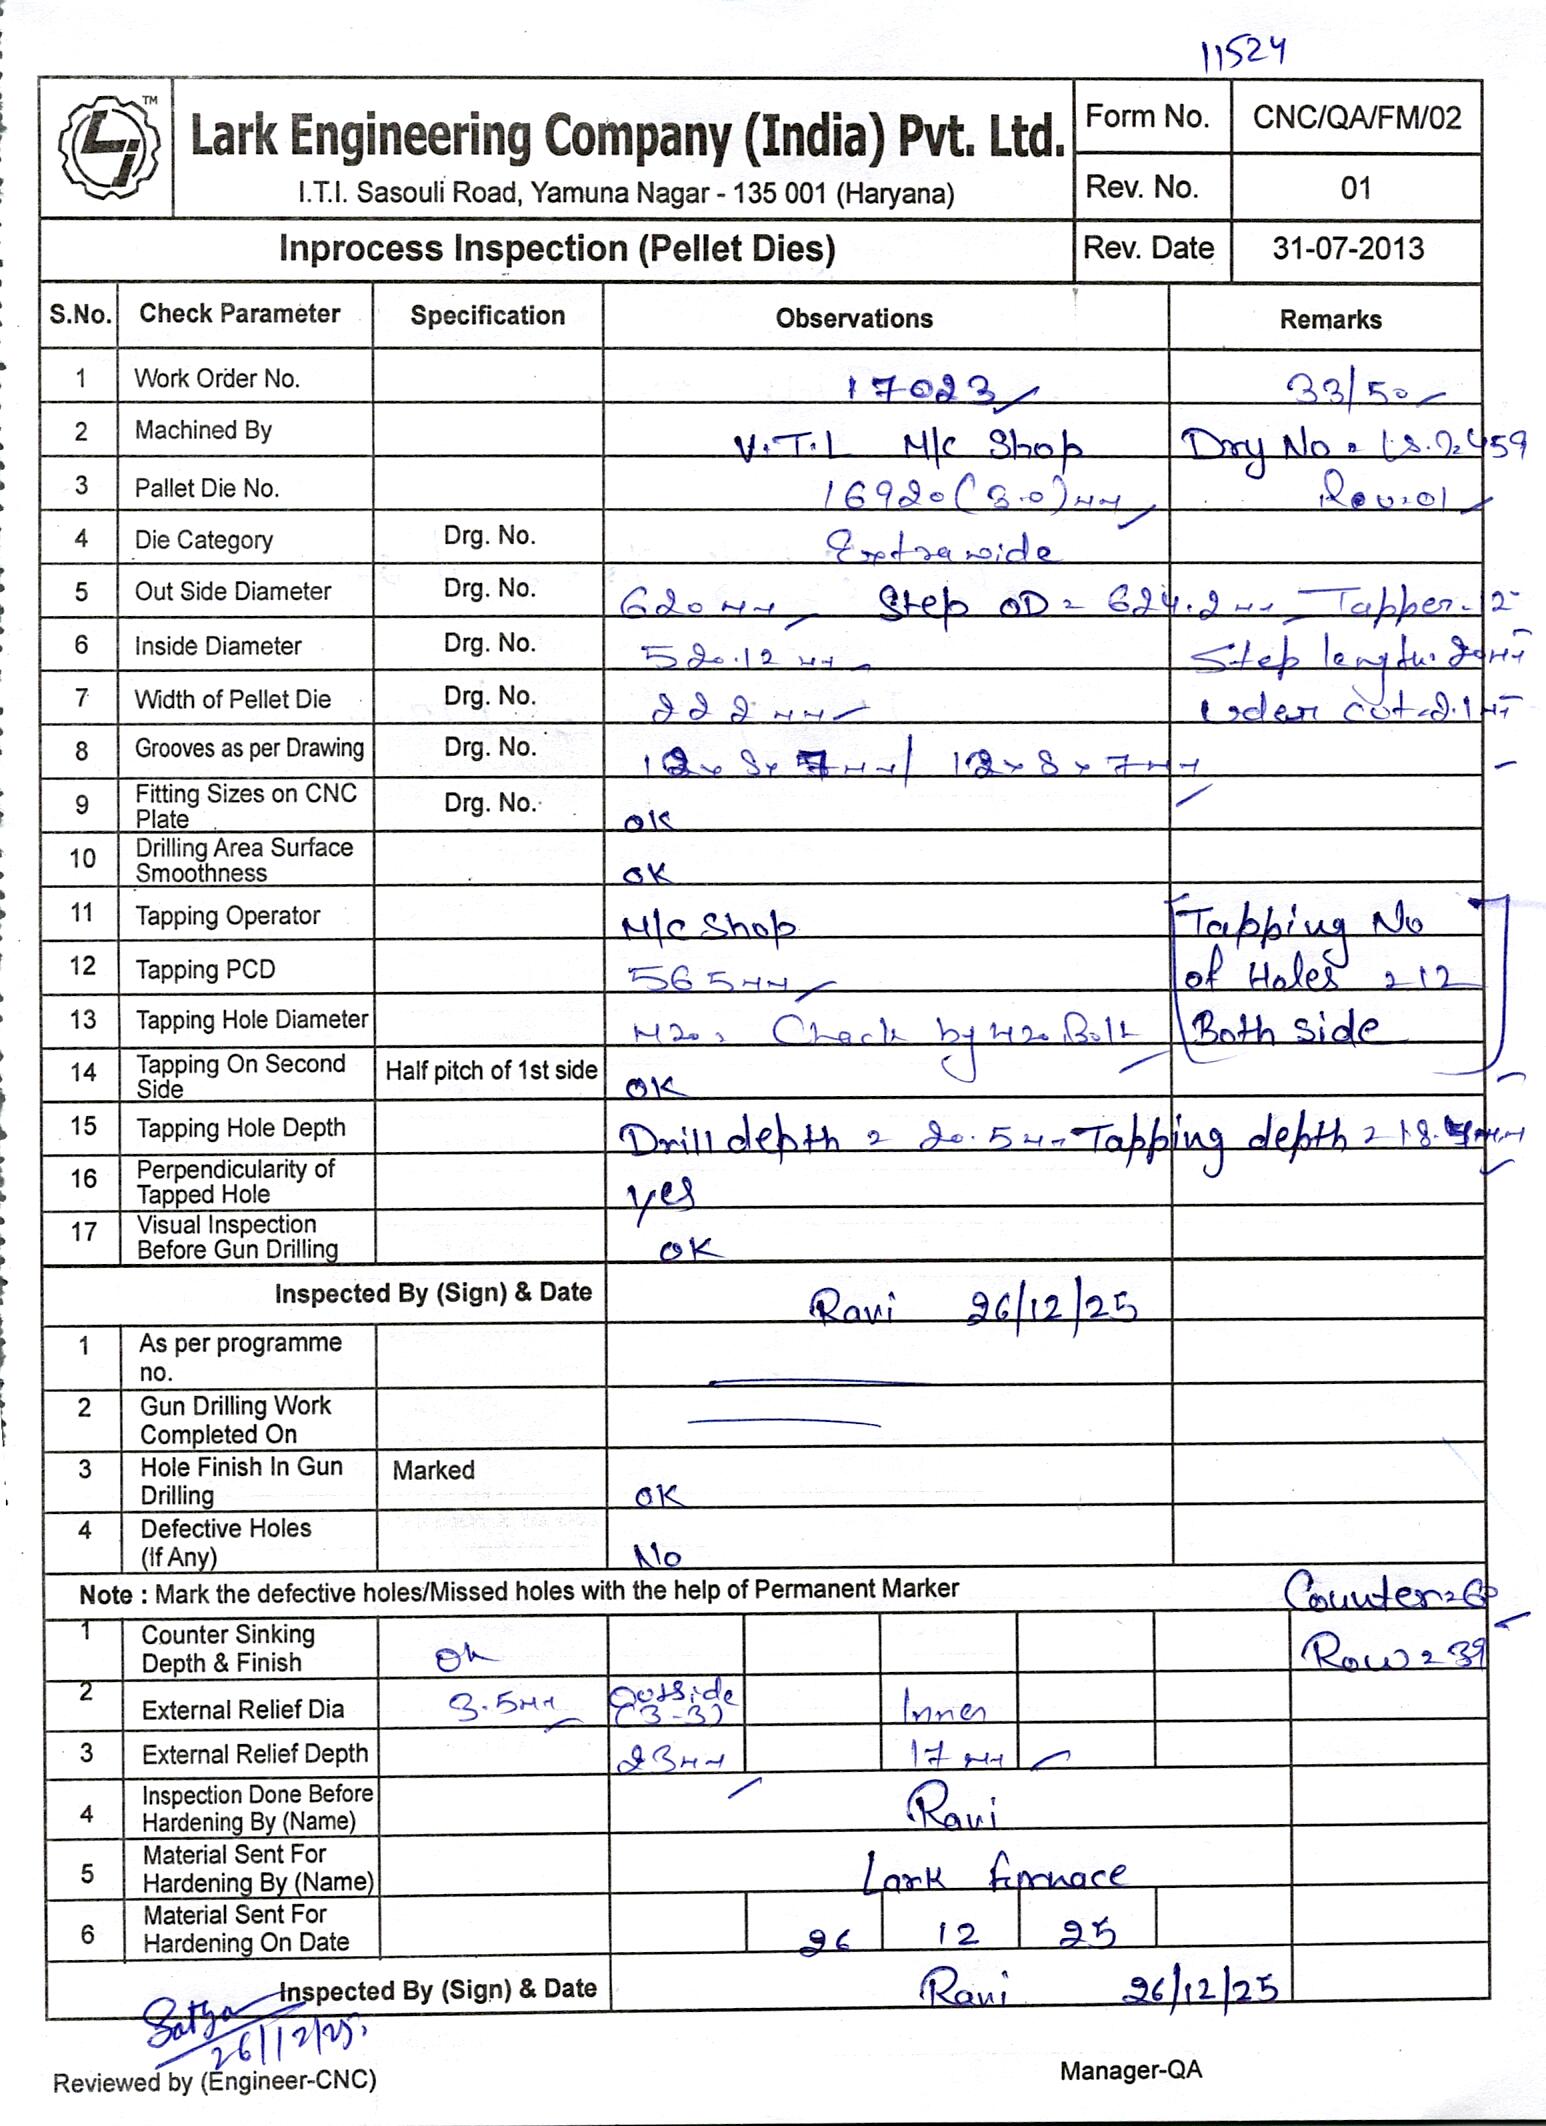 11524
TM
Lark Engineering Company (India) Pvt. Ltd.
I.T.I. Sasouli Road, Yamuna Nagar - 135 001 (Haryana)
Form No. CNC/QA/FM/02
Rev. No. 01
Inprocess Inspection (Pellet Dies)
Rev. Date 31-07-2013
S.No. Check Parameter Specification Observations Remarks
1 Work Order No. 17023 33/50
2 Machined By V.T.L M/c Shop Drg No = LS.2459
3 Pallet Die No. 16920 (3.0) mm Rev:01
4 Die Category Drg. No. Extra wide
5 Out Side Diameter Drg. No. 620 mm Step OD = 624.2 mm Tapper-12
6 Inside Diameter Drg. No. 520.12 mm Step length: 20mm
7 Width of Pellet Die Drg. No. 222 mm Under cut-2.1mm
8 Grooves as per Drawing Drg. No. 12x8x7mm/ 12x8x7mm
9 Fitting Sizes on CNC Plate Drg. No. OK
10 Drilling Area Surface Smoothness OK
11 Tapping Operator M/c Shop Tapping No
12 Tapping PCD 565mm of Holes = 12
13 Tapping Hole Diameter M20, Check by M20 Bolt Both side
14 Tapping On Second Side Half pitch of 1st side OK
15 Tapping Hole Depth Drill depth = 20.5mm Tapping depth = 18. mm
16 Perpendicularity of Tapped Hole yes
17 Visual Inspection Before Gun Drilling OK
Inspected By (Sign) & Date Ravi 26/12/25
1 As per programme no.
2 Gun Drilling Work Completed On
3 Hole Finish In Gun Drilling Marked OK
4 Defective Holes (If Any) No
Note : Mark the defective holes/Missed holes with the help of Permanent Marker Counter=60
1 Counter Sinking Depth & Finish Ok Row = 39
2 External Relief Dia 3.5mm Outside (3-3) Inner
3 External Relief Depth 23mm 17 mm
4 Inspection Done Before Hardening By (Name) Ravi
5 Material Sent For Hardening By (Name) Lark furnace
6 Material Sent For Hardening On Date 26 12 25
Inspected By (Sign) & Date Ravi 26/12/25
Satya
26/12/25
Reviewed by (Engineer-CNC)
Manager-QA